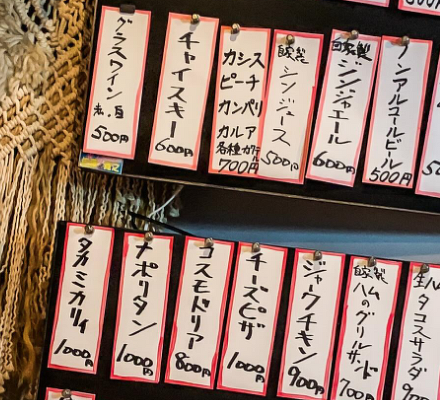 グラスワイン
赤、白
500円
チャイスキー
600円
カシス
ピーチ
カンパリ
カルア
各種カクテル
700円
自家製
シソジュース
500円
自家製
ジンジャエール
600円
ノンアルコールビール
500円
タカミカリィ
1000円
ナポリタン
1000円
コスモドリア
800円
チーズピザ
1000円
ジャークチキン
900円
自家製
ハムのグリルサンド
700円
タコスサラダ